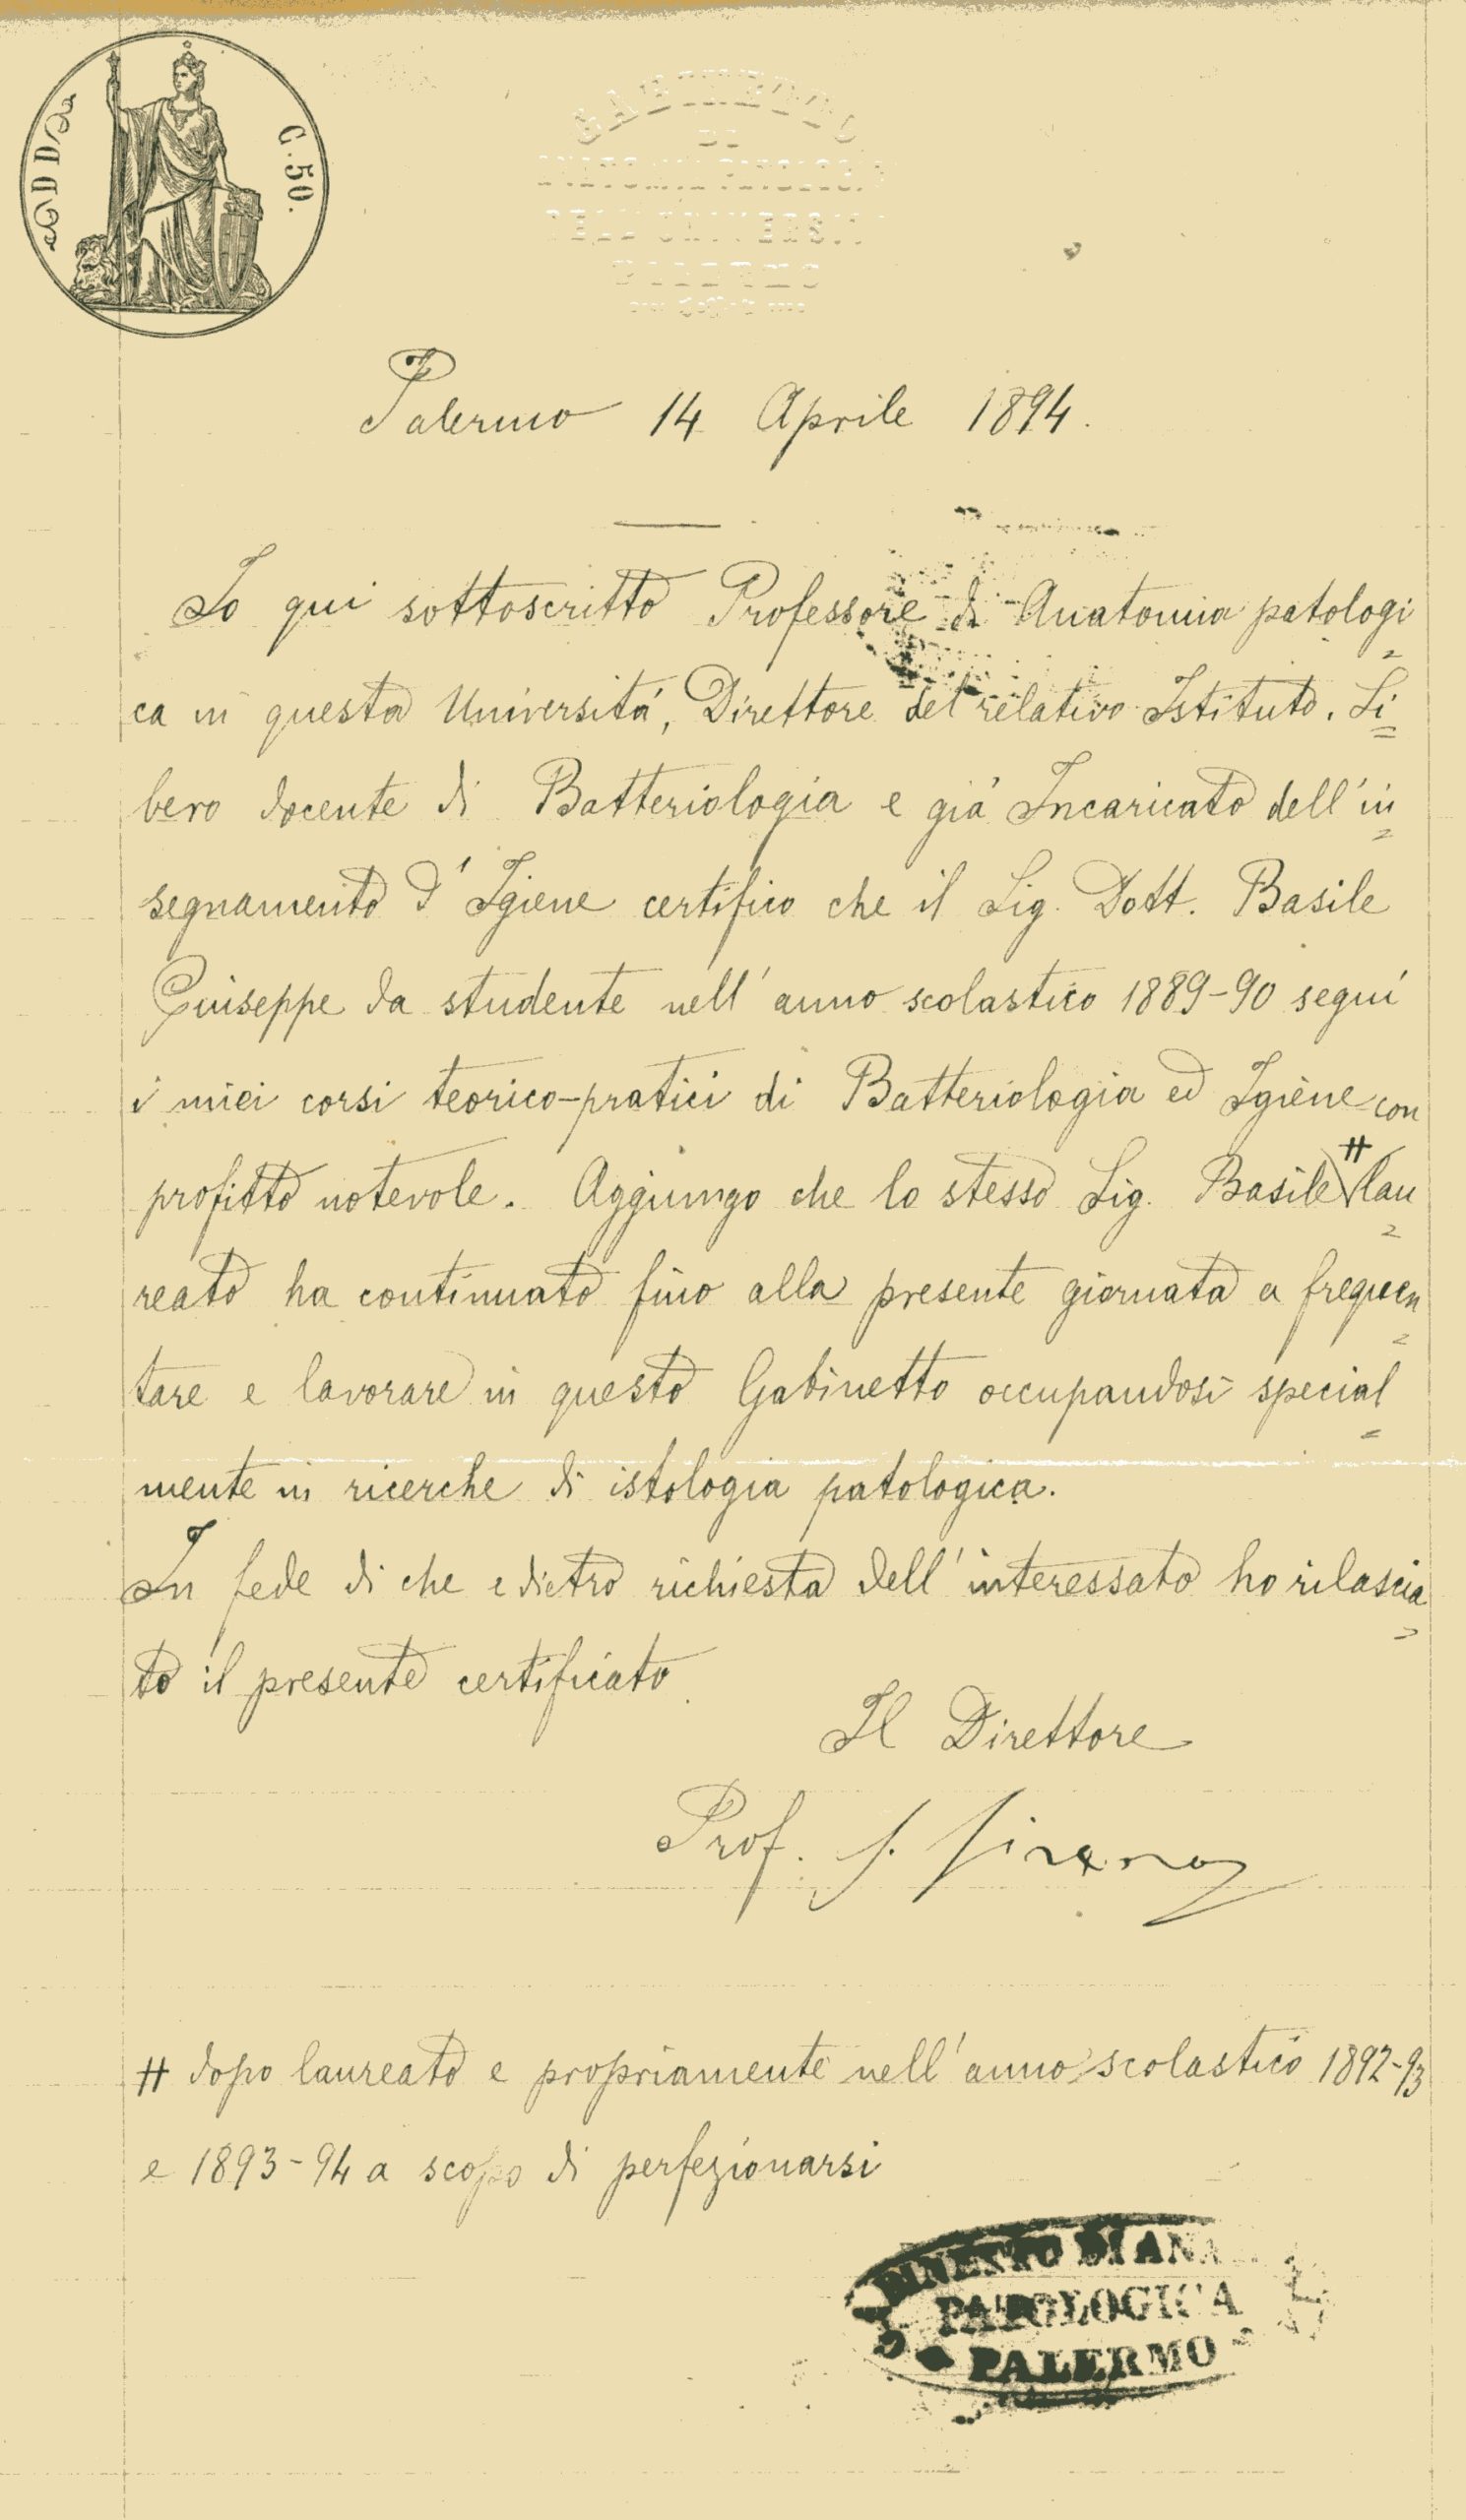 C. 50.
GABINETTO
DI
PALERMO
Palermo 14 Aprile 1894.
Io qui sottoscritto Professore di Anatomia patologi
ca in questa Universitá, Direttore del relativo Istituto. Li=
bero docente di Batteriologia e giá Incaricato dell'in=
segnamento d'Igiene certifico che il Sig. Dott. Basile
Giuseppe da studente nell'anno scolastico 1889-90 seguí
i miei corsi teorico-pratici di Batteriologia ed Igiene con
profitto notevole. Aggiungo che lo stesso Sig. Basile # lau=
reato ha continuato fino alla presente giornata a frequen=
tare e lavorare in questo Gabinetto occupandosi special=
mente in ricerche di istologia patologica.
In fede di che e dietro richiesta dell'interessato ho rilascia=
to il presente certificato.
Il Direttore
Prof.
# dopo laureato e propriamente nell'anno scolastico 1892-93
e 1893-94 a scopo di perfezionarsi
PATOLOGICA
PALERMO